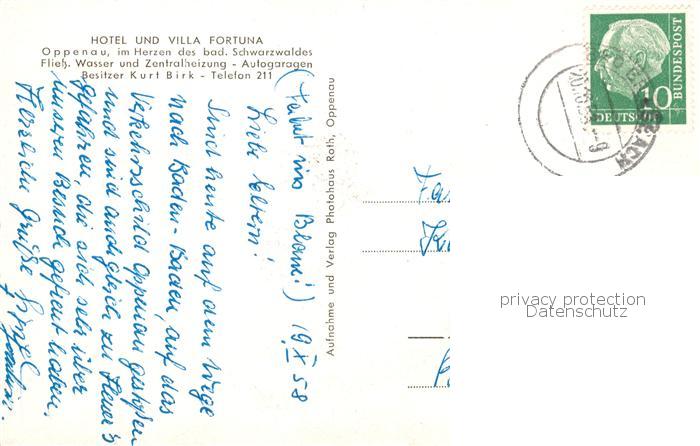 HOTEL UND VILLA FORTUNA
Oppenau, im Herzen des bad. Schwarzwaldes
Fließ. Wasser und Zentralheizung - Autogaragen
Besitzer Kurt Birk - Telefon 211
(Fahrt ins Blaue!) 19.X.58
Liebe Eltern!
Sind heute auf dem Wege
nach Baden-Baden, auf das
Verkehrsschild Oppenau gestoßen
und sind auch gleich zu Heuer's
gefahren, die sich sehr über
unseren Besuch gefreut haben.
Herzliche Grüße
Aufnahme und Verlag Photohaus Roth, Oppenau
10
DEUTSCHE
BUNDESPOST
privacy protection
Datenschutz